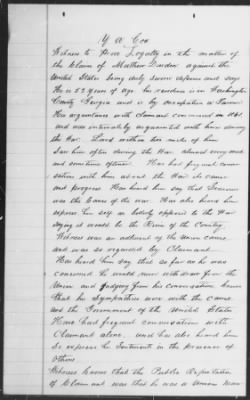 Y A Cox
Witness to Prove Loyalty in the matter of
the Claim of Matthew against the
United States being duly sworn deposes and says
He is 52 years of age his residence is in Washington
County Georgia and is by occupation a Farmer
His acquaintance with Claimant commenced in 1841.
and was intimately acquainted with him during
the War. Lived within two miles of him
Saw him often during the War almost every week
and sometimes oftener. Has had frequent conver
sations with him about the War its cause
and progress Has heard him say that Secession
was the Cause of the war. Has also heard him
express him self as bitterly opposed to the War
saying it would be the Ruin of the Country.
Witness was an adherent of the Union Cause
and was so regarded by Claimant.
Has heard him say that so far as he was
concerned he would never withdraw from the
Union and judging from his conversation knows
that his Sympathies were with the Cause
and the Government of the United States
Have had frequent conversation with
Claimant alone. and has also heard him
so express his Sentiments in the presence of
others
Witness knows that the Public Reputation
of Claimant was that he was a Union man